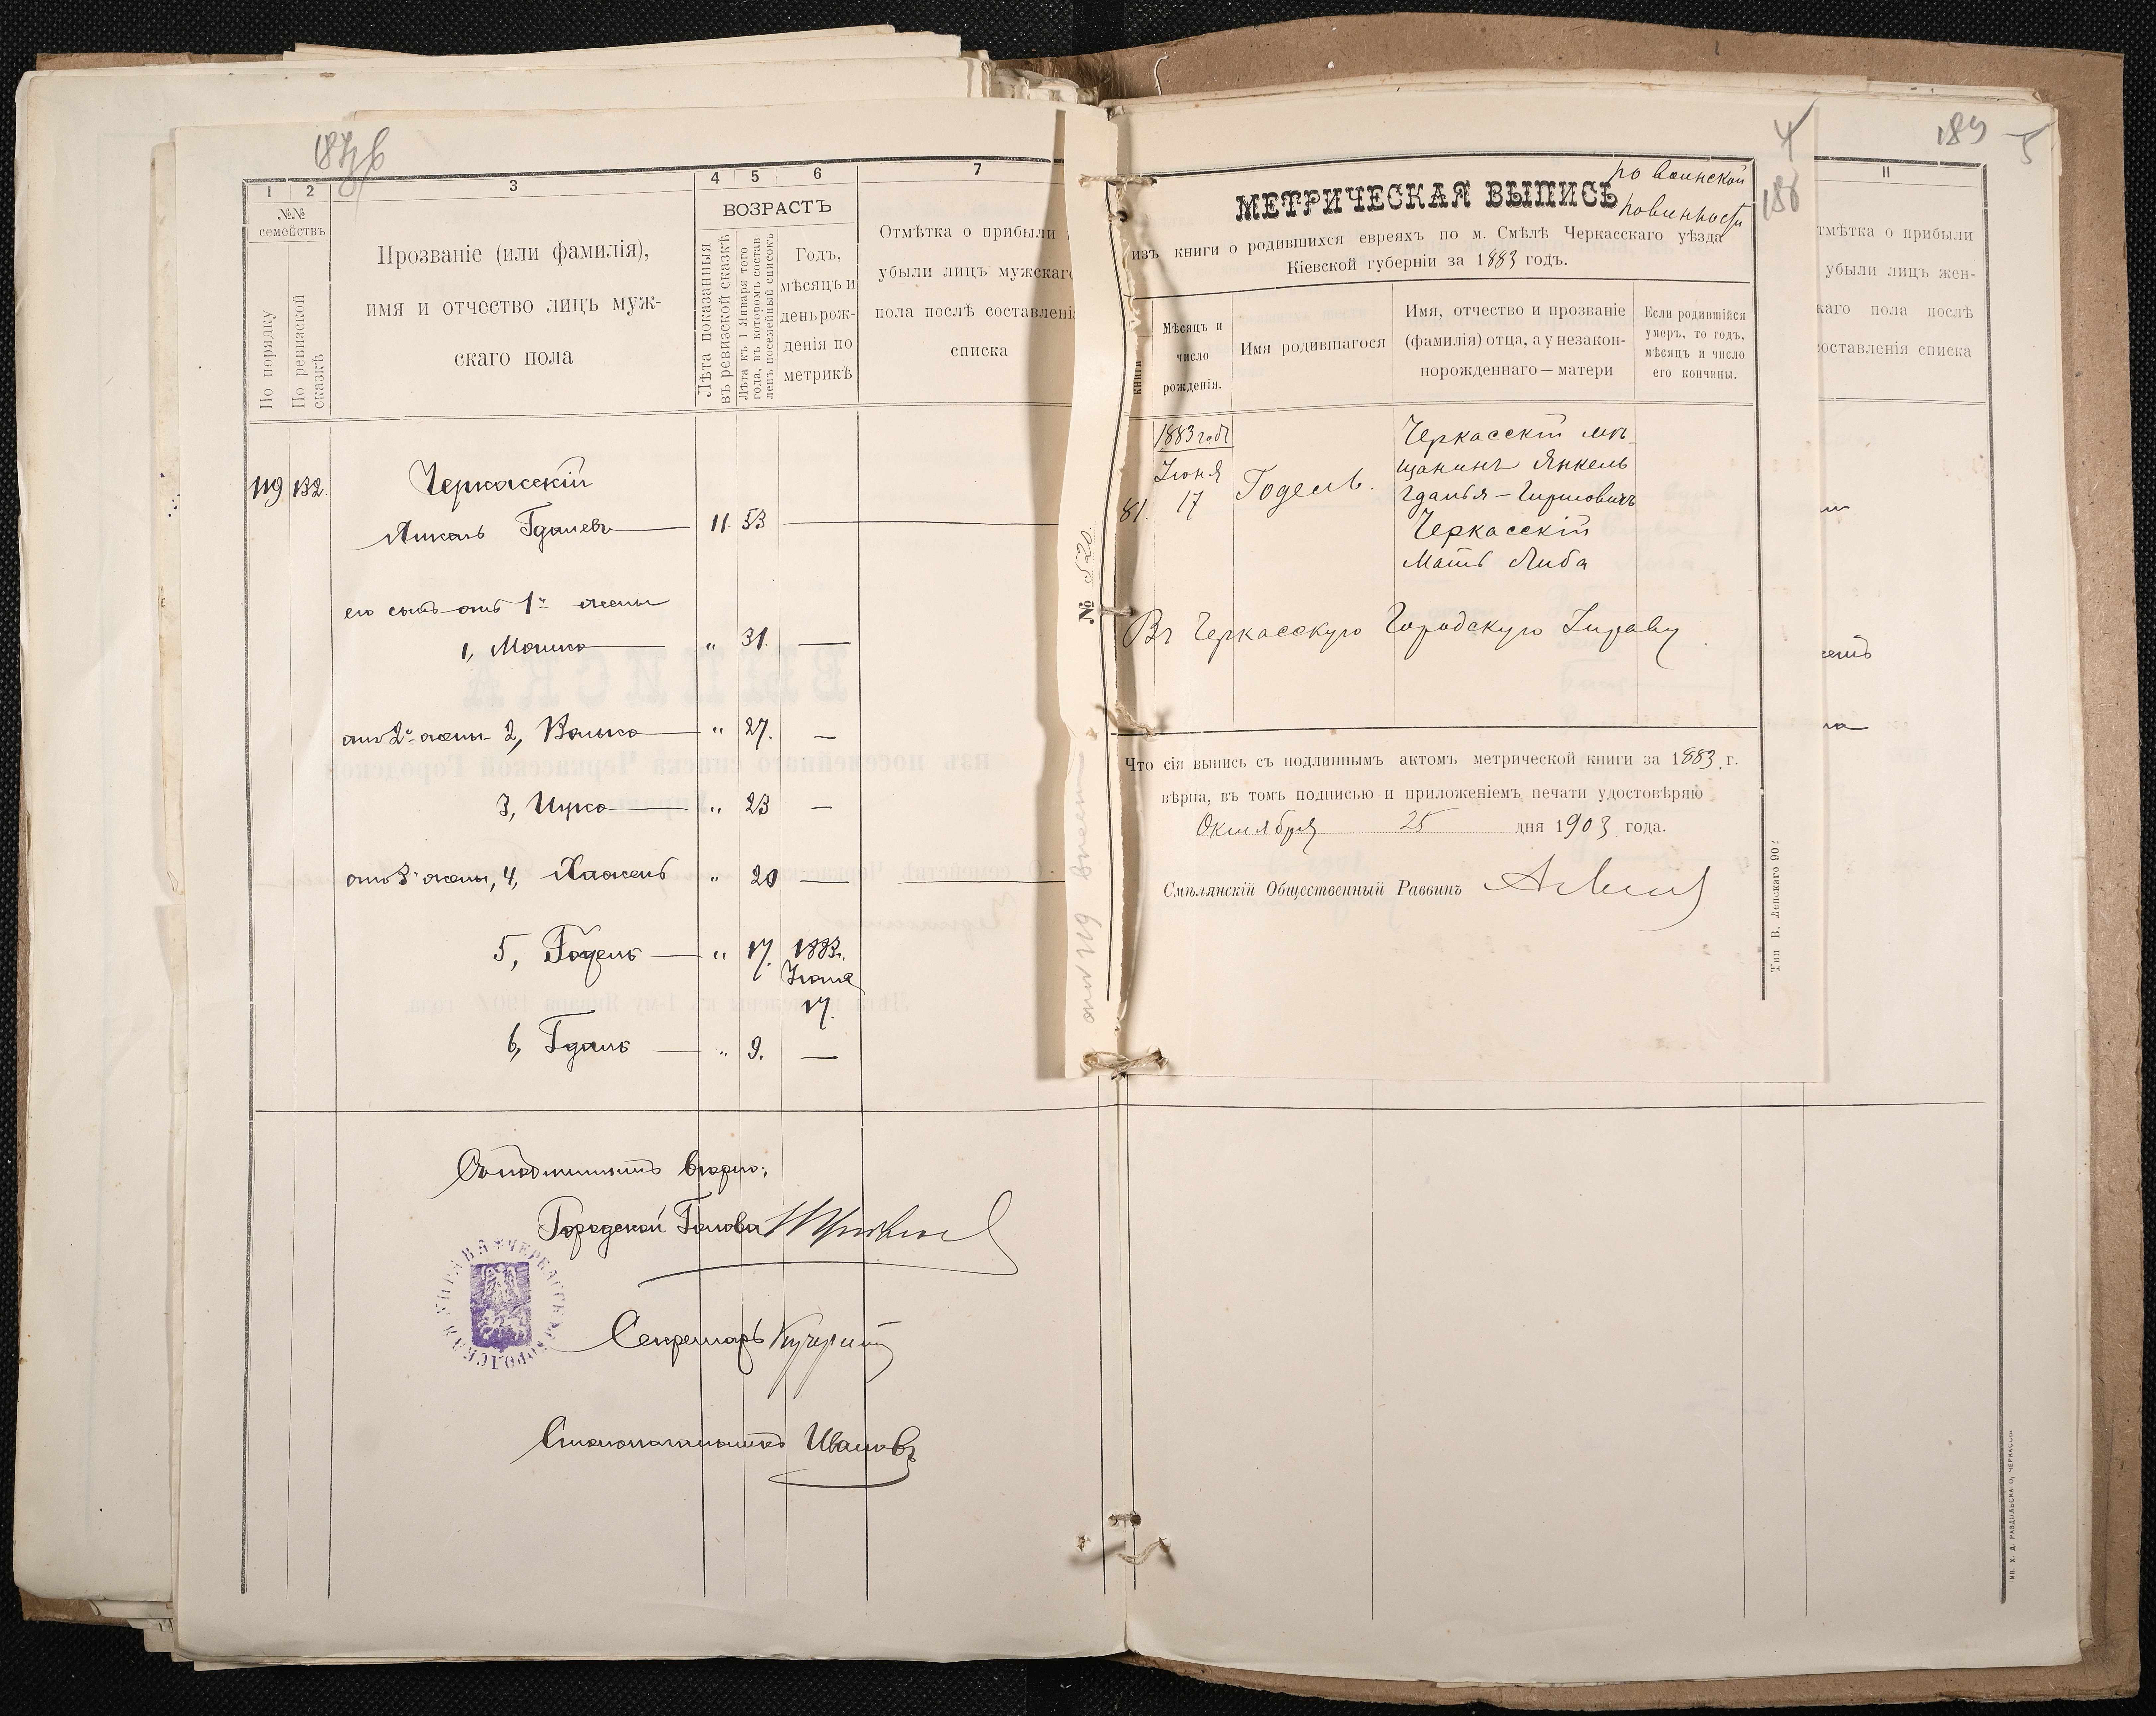 187об
1 2 3 4 5 6 7
№№
семействъ
По порядку
По ревизской
сказкѣ
Прозваніе (или фамилія),
имя и отчество лицъ муж-
скаго пола
ВОЗРАСТЪ
Лѣта показанныя
въ ревизской сказкѣ
Лѣта къ 1 Января того
года, въ которомъ состав-
ленъ посемейный списокъ
Годъ,
мѣсяцъ и
день рож-
денія по
метрикѣ
Отмѣтка о прибыли
убыли лицъ мужскаго
пола послѣ составлені
списка
119 132. Черкасскій
Янкель Гдалевъ 11 53 —
его сынъ отъ 1й жены
1, Мошко " 31. —
отъ 2й жены 2, Волько " 27. —
3, Ицко " 23 —
отъ 3й жены, 4, " 20 —
5, Годель — " 17. 1883г.
Іюня
17.
6, Гдаль — " 9. —
Съ подлиннымъ вѣрно:
Городской Голова
Секретарь
Столоначальникъ Ивановъ
№ 520.
4
186
по воинской
повинности
МЕТРИЧЕСКАЯ ВЫПИСЬ
изъ книги о родившихся евреяхъ по м. Смѣлѣ Черкасскаго уѣзда
Кіевской губерніи за 1883 годъ.
книги
Мѣсяцъ и
число
рожденія.
Имя родившагося
Имя, отчество и прозваніе
(фамилія) отца, а у незакон-
норожденнаго — матери
Если родившійся
умеръ, то годъ,
мѣсяцъ и число
его кончины.
81.
1883 годъ
Іюня
17
Годель.
Черкасскій мѣ-
щанинъ Янкель
Гдалья-Гиршовичъ
Черкасскій
Мать Либа
Въ Черкасскую Городскую Управу
Что сія выпись съ подлиннымъ актомъ метрической книги за 1883 г.
вѣрна, въ томъ подписью и приложеніемъ печати удостовѣряю
Октября 25 дня 1903 года.
Смѣлянскій Общественный Раввинъ
189
5
11
тмѣтка о прибыли
убыли лицъ жен-
каго пола послѣ
оставленія списка